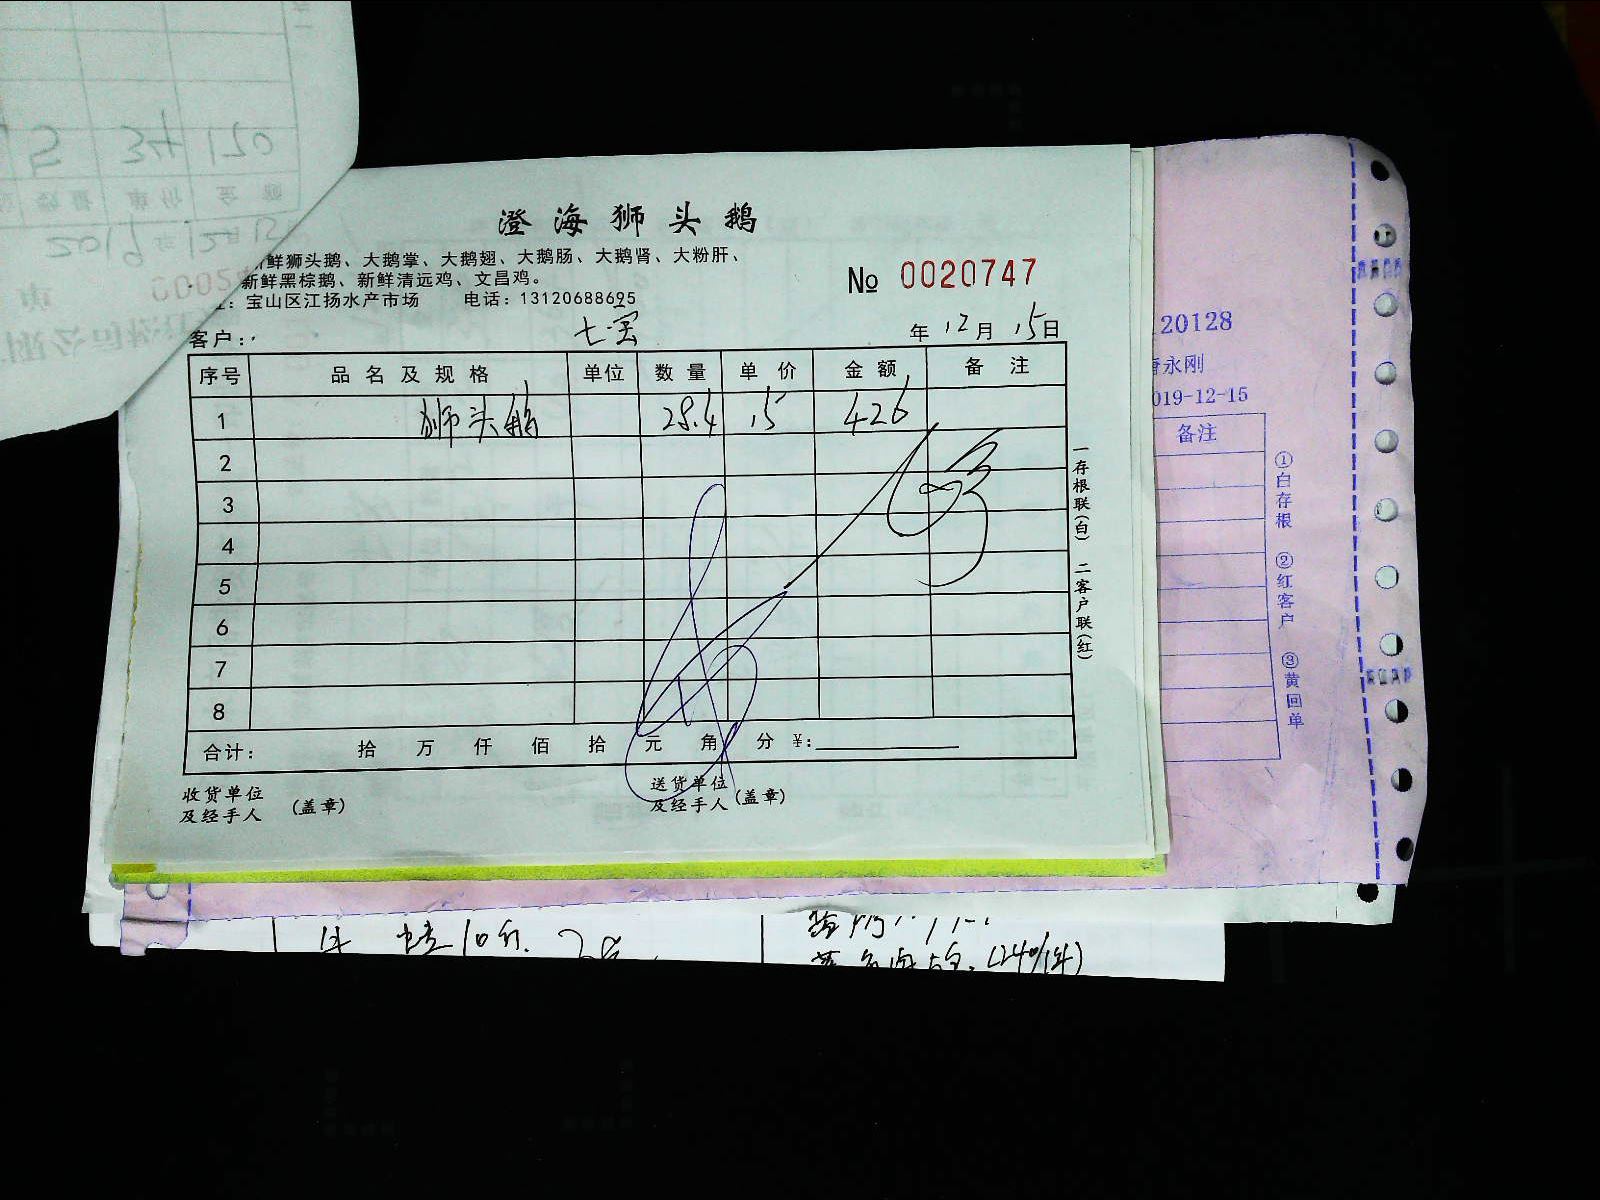 澄海狮头鹅
鲜狮头鹅、大鹅掌、大鹅翅、大鹅肠、大鹅肾、大粉肝、
新鲜黑棕鹅、新鲜清远鸡、文昌鸡。
：宝山区江扬水产市场 电话：13120688695
№ 0020747
客户： 七宝 年 12月 15日
序号 品名及规格 单位 数量 单价 金额 备注
1 狮头鹅 28.4 15 426
2
3
4
5
6
7
8
合计： 拾 万 仟 佰 拾 元 角 分 ¥：
收货单位
及经手人 （盖章）
送货单位
及经手人（盖章）
一存根联（白） 二客户联（红）
20128
永刚
019-12-15
备注
①白存根 ②红客户 ③黄回单
5 34 170
数量 单价 金额
2019年12月15
10斤
(240/件)